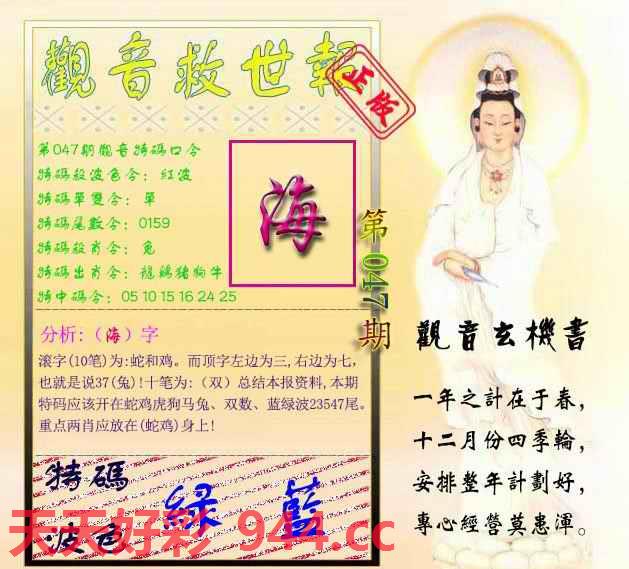 觀音救世報
正版
第047期觀音特碼口令
特碼殺波色令：紅波
特碼單雙令：單
特碼尾數令：0159
特碼殺肖令：兔
特碼出肖令：龍鷄猪狗牛
特中碼令：05 10 15 16 24 25
海
第047期
分析:（海）字
滚字(10笔)为:蛇和鸡。而顶字左边为三,右边为七,
也就是说37(兔)!十笔为:（双）总结本报资料,本期
特码应该开在蛇鸡虎狗马兔、双数、蓝绿波23547尾。
重点两肖应放在(蛇鸡)身上!
特碼
波色
綠 藍
觀音玄機書
一年之計在于春，
十二月份四季輪，
安排整年計劃好，
專心經營莫患渾。
天天好彩 944.cc